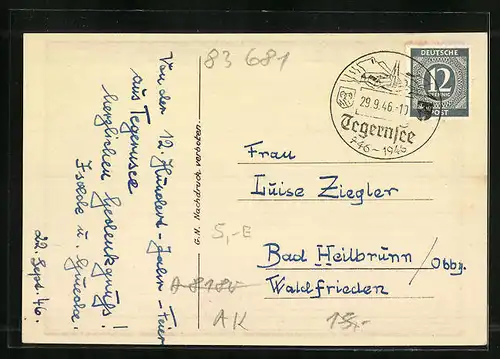 83 681
Von der 12. Hundert-Jahr-Feier
aus Tegernsee
herzlichen Gedenkgruß!
u.
22. Sept. 46.
G. H. Nachdruck verboten
DEUTSCHE
12
PFENNIG
POST
29.9.46.-1
Tegernsee
746-1946
Frau
Luise Ziegler
Bad Heilbrunn/Obby.
Waldfrieden
5,-E
A 8184
AK
15,-